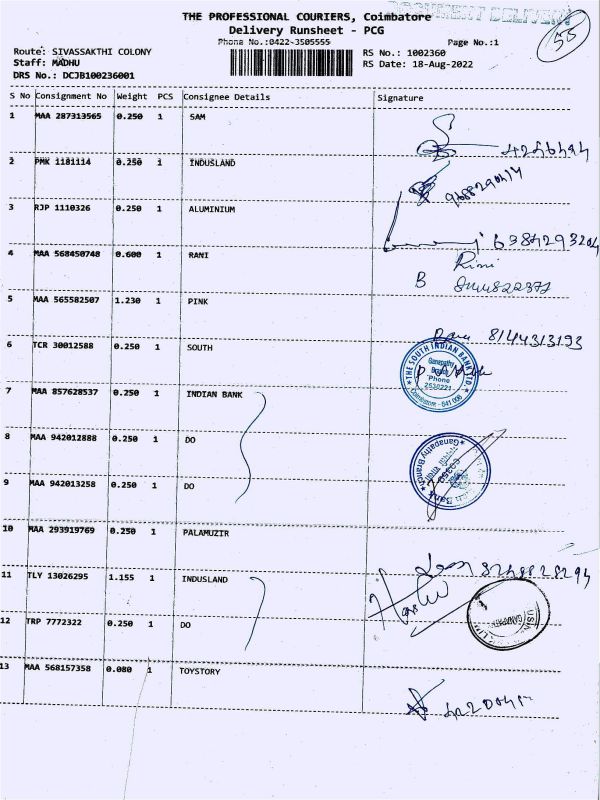 THE PROFESSIONAL COURIERS, Coimbatore
DOCUMENT DELIVERY
Delivery Runsheet - PCG
55
Phona No.:0422-3505555
Page No.:1
Route: SIVASSAKTHI COLONY
RS No.: 1002360
Staff: MADHU
RS Date: 18-Aug-2022
DRS No.: DCJB100236001
S No Consignment No Weight PCS Consignee Details Signature
1 MAA 287313565 0.250 1 SAM
2 PMK 1181114 0.250 1 INDUSLAND
3 RJP 1110326 0.250 1 ALUMINIUM
6384293204
4 MAA 568450748 0.600 1 RANI
B
5 MAA 565582507 1.230 1 PINK
8144313193
6 TCR 30012588 0.250 1 SOUTH
THE SOUTH INDIAN BANK LTD
Ganapathy
Branch
Phone
2530221
Coimbatore - 641 006
7 MAA 857628537 0.250 1 INDIAN BANK
8 MAA 942012888 0.250 1 DO
Ganapathy Branch
9 MAA 942013258 0.250 1 DO
10 MAA 293919769 0.250 1 PALAMUZIR
8248828294
11 TLY 13026295 1.155 1 INDUSLAND
12 TRP 7772322 0.250 1 DO
13 MAA 568157358 0.080 1 TOYSTORY